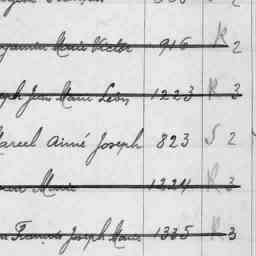 Marie Victor 916 R 2
Jean Marie Léon 1223 R 3
Marcel Aimé Joseph 823 S 2
Marie 1224 R 3
François Joseph Marie 1335 R 3